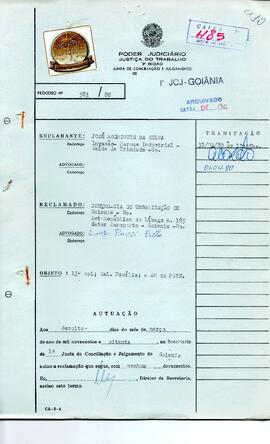 CAIXA
485
PODER JUDICIÁRIO
JUSTIÇA DO TRABALHO
3ª REGIÃO
JUNTA DE CONCILIAÇÃO E JULGAMENTO
DE
1ª JCJ-GOIÂNIA
PROCESSO Nº 583 / 80
ARQUIVADO
RECLAMANTE: JOSÉ RODRIGUES DA SILVA
Endereço Invasão- Parque Industrial -
Saída de Trindade -Go.
ADVOGADO:
Endereço
TRAMITAÇÃO
01.04.80
RECLAMADO: COMPANHIA DE URBANIZAÇÃO DE
Endereço Goiania - Go.
Av: República do Líbano n. 185
Setor Aeroporto - Goiania -Go.
ADVOGADO: Luiz Filho
Endereço
OBJETO : 13º sal; Sal. Família; e AM do FGTS.
AUTUAÇÃO
Aos dezoito- dias do mês de março
do ano de mil novecentos e oitenta, na Secretaria
da 1ª Junta de Conciliação e Julgamento de Goiania
autuo a reclamação que segue, com nenhum documentos.
Eu, Diretor da Secretaria,
assino este termo.